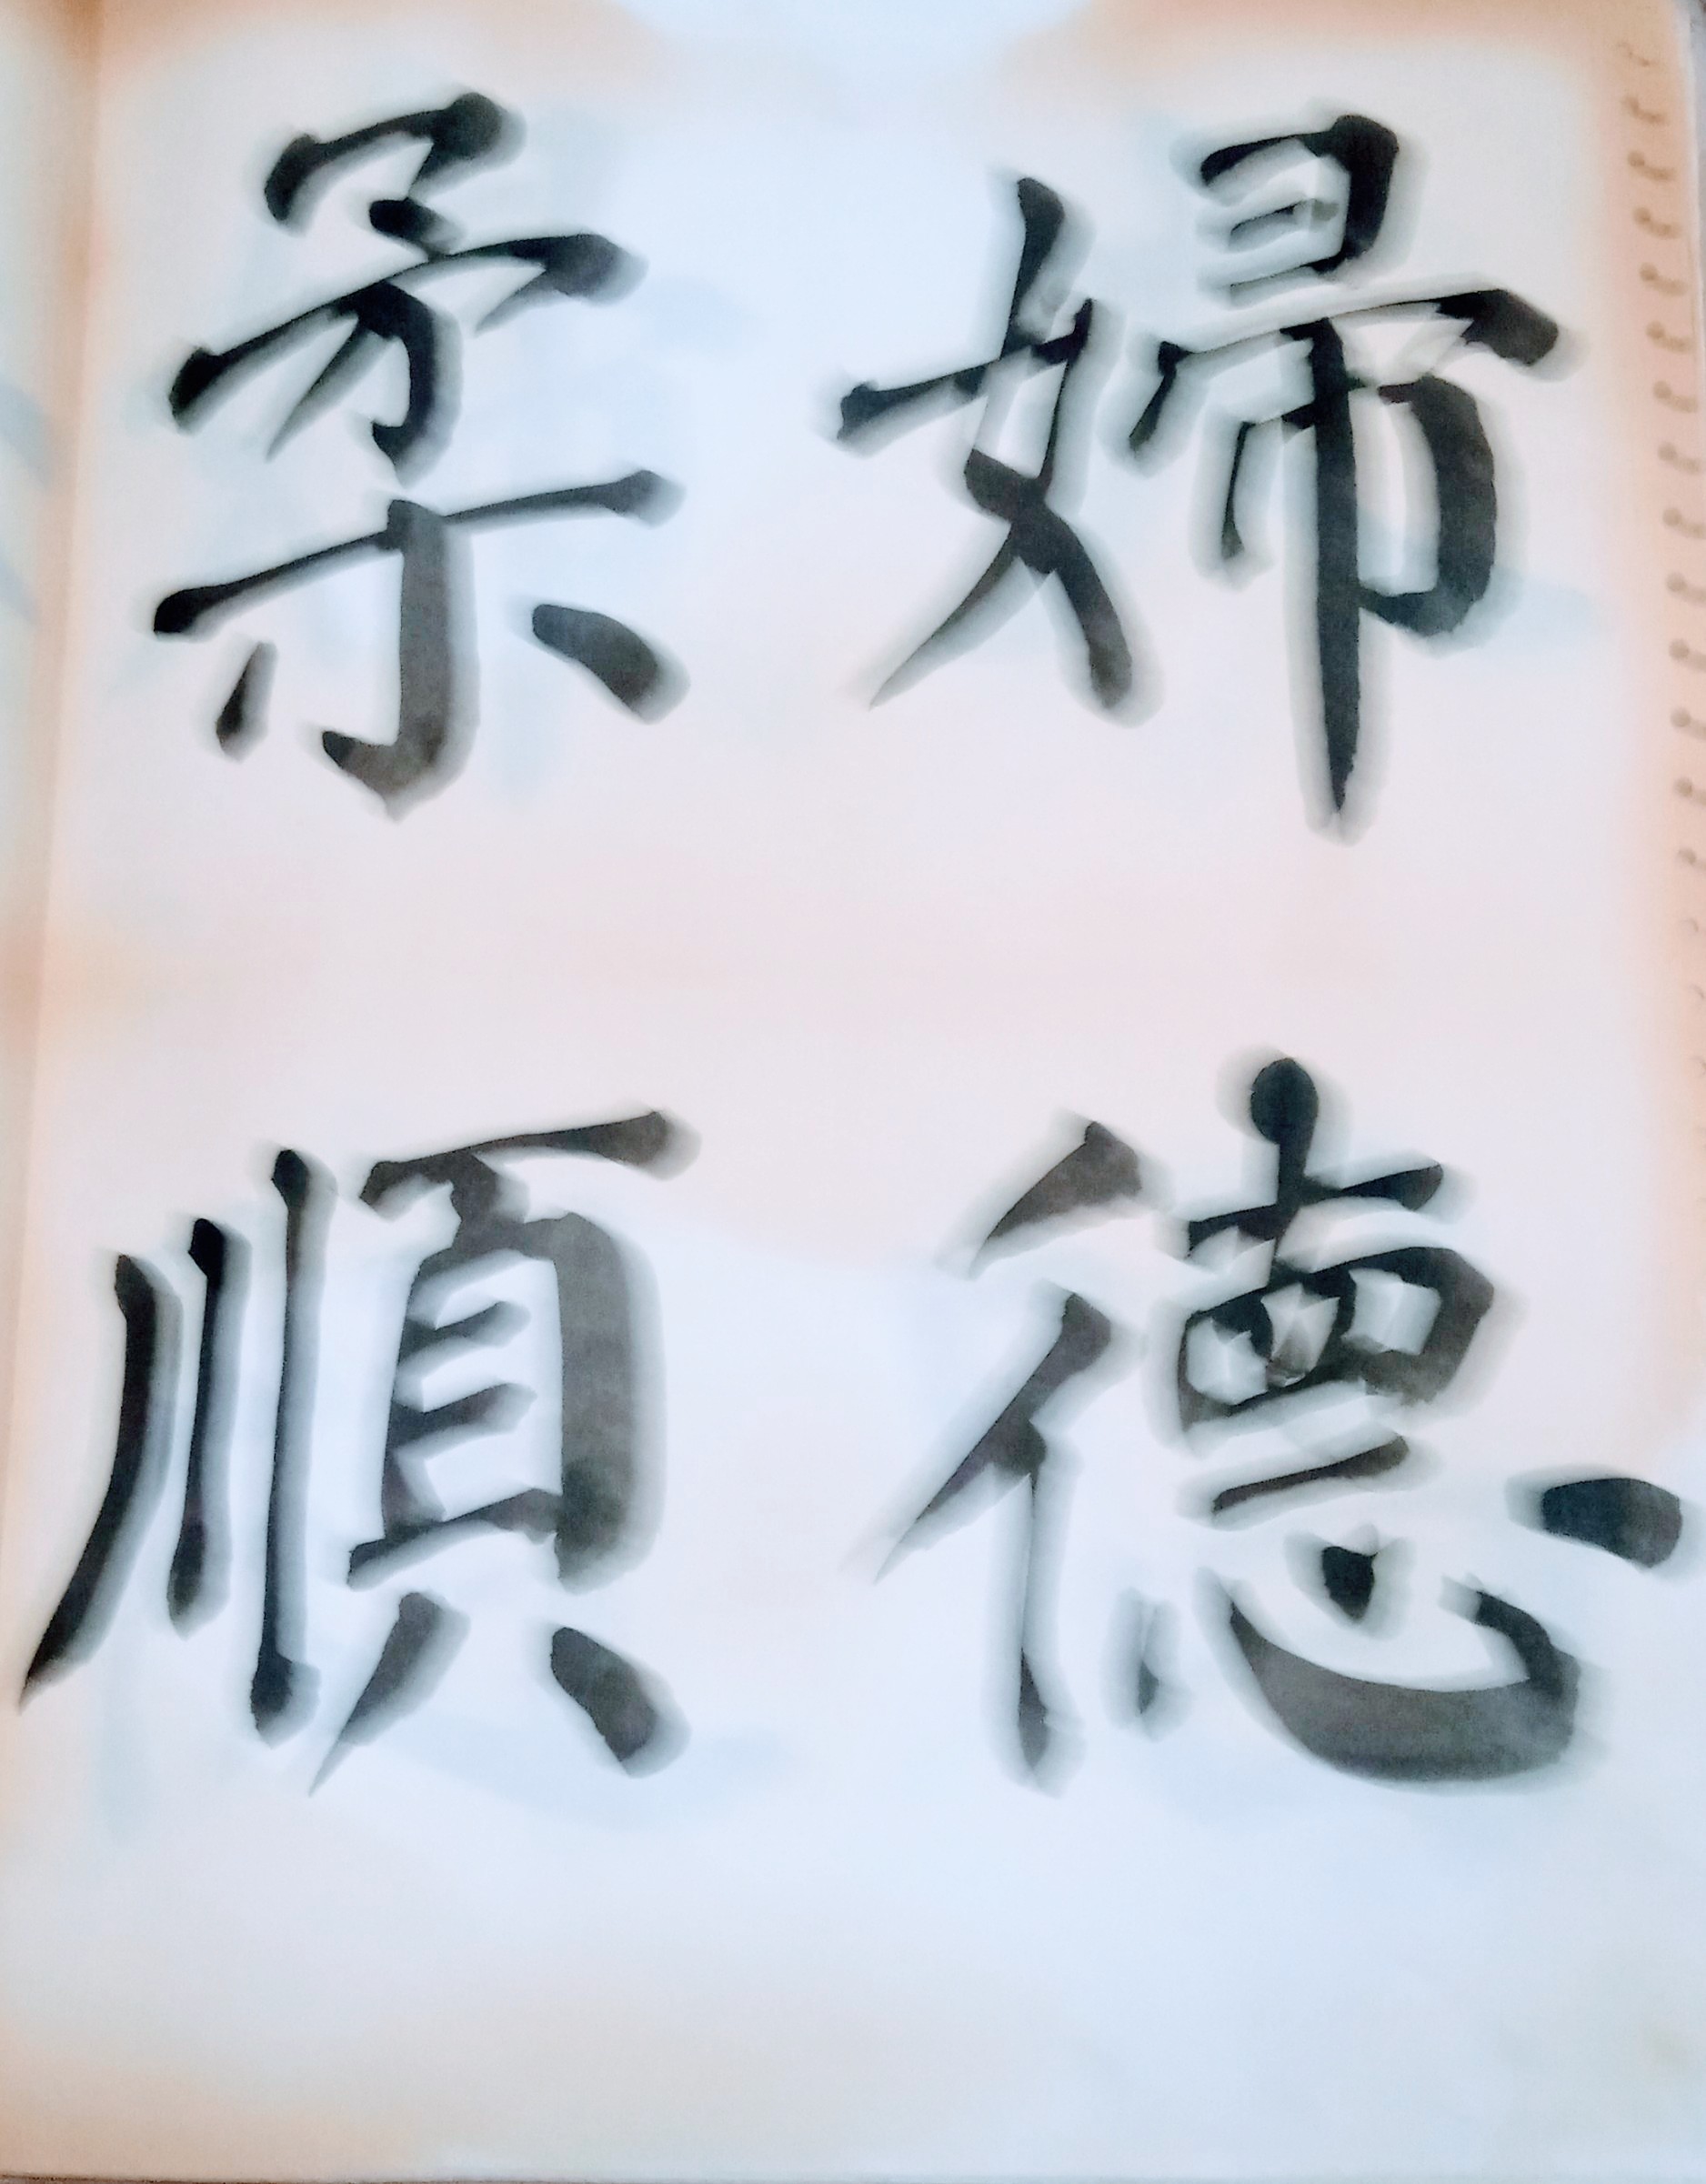 婦德
柔順